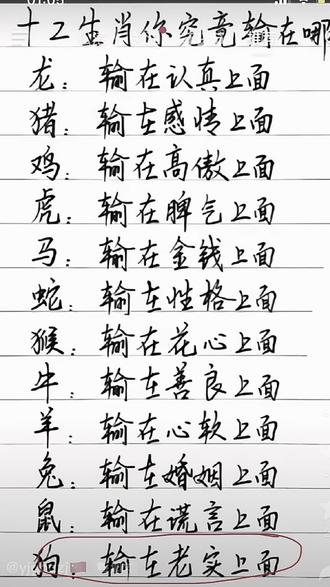 十二生肖你究竟输在哪
龙：输在认真上面
猪：输在感情上面
鸡：输在高傲上面
虎：输在脾气上面
马：输在金钱上面
蛇：输在性格上面
猴：输在花心上面
牛：输在善良上面
羊：输在心软上面
兔：输在婚姻上面
鼠：输在谎言上面
狗：输在老实上面